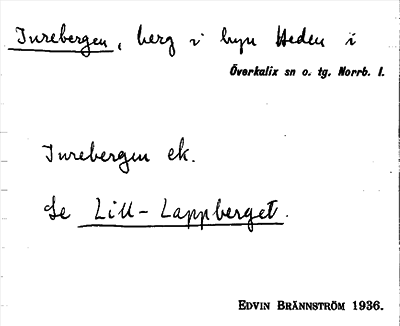 Inrebergen, berg i byn Heden i
Överkalix sn o. tg. Norrb. l.
Inrebergen ek.
Se Lill-Lappberget.
EDVIN BRÄNNSTRÖM 1936.